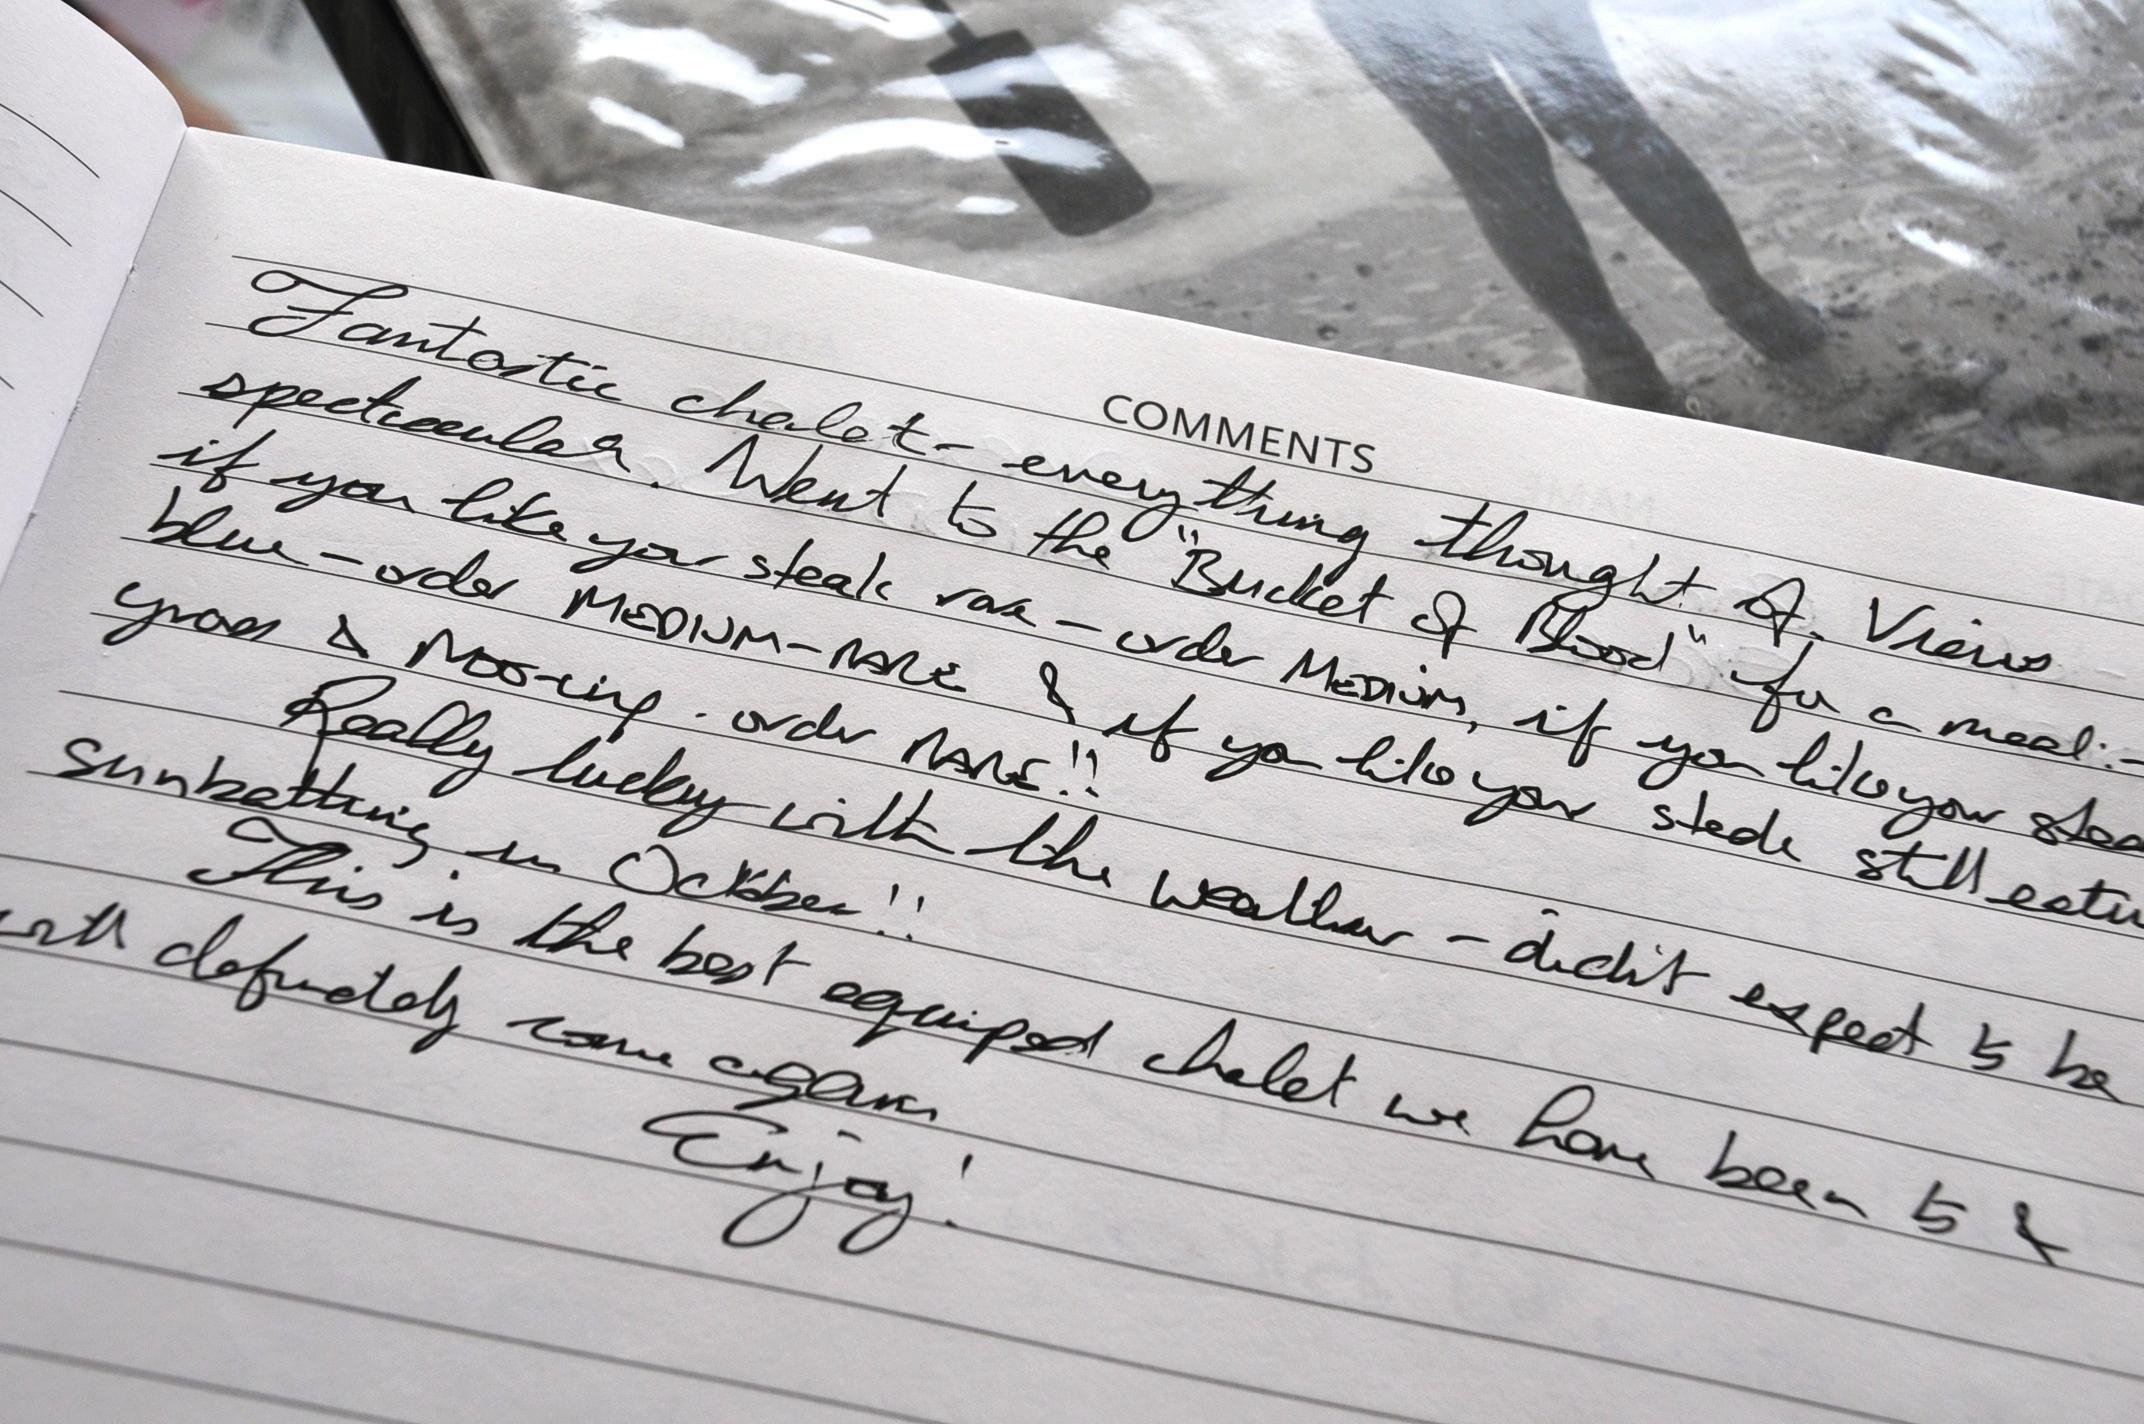 COMMENTS
Fantastic chalet - everything thought of. Views
spectacular. Went to the "Bucket of Blood" for a meal:-
if you like your steak rare - order MEDIUM, if you like your steak
blue - order MEDIUM-RARE & if you like your steak still eating
grass & moo-ing - order RARE!!
Really lucky with the weather - didn't expect to be
sunbathing in October!!
This is the best equiped chalet we have been to &
will definitely come again
Enjoy!